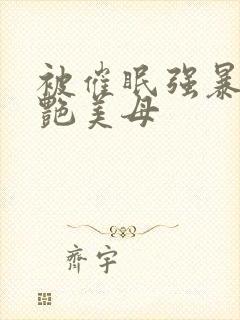 被催眠强暴
艷美母
齊宇